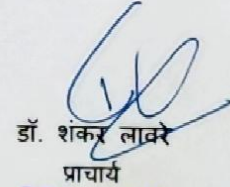 डॉ. शंकर लावरे
प्राचार्य